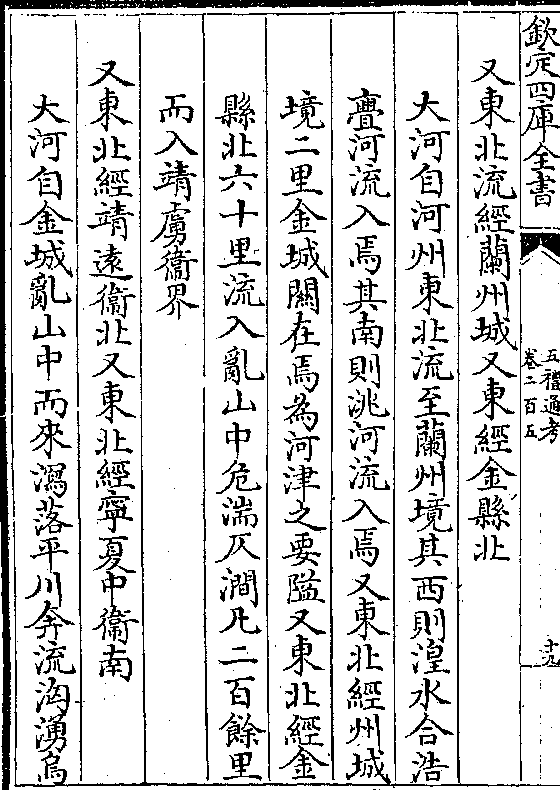 欽定四庫全書
五禮通考
卷二百五
十九
又東北流經蘭州城又東經金縣北
大河自河州東北流至蘭州境其西則湟水合浩
亹河流入焉其南則洮河流入焉又東北經州城
境二里金城關在焉為河津之要隘又東北經金
縣北六十里流入亂山中危湍仄澗凡二百餘里
而入靖虜衞界
又東北經靖遠衞北又東北經寧夏中衞南
大河自金城亂山中而來瀉落平川奔流洶湧烏